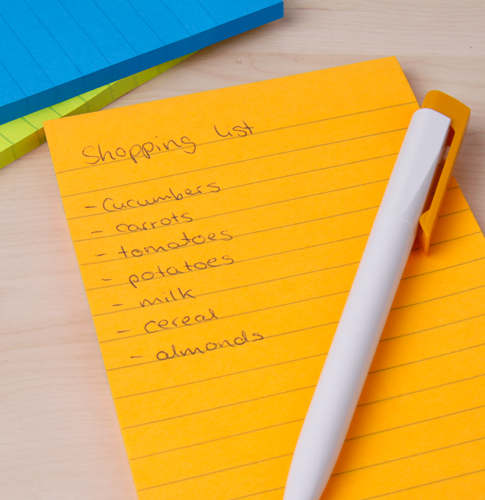 Shopping list
- Cucumbers
- carrots
- tomatoes
- potatoes
- milk
- cereal
- almonds